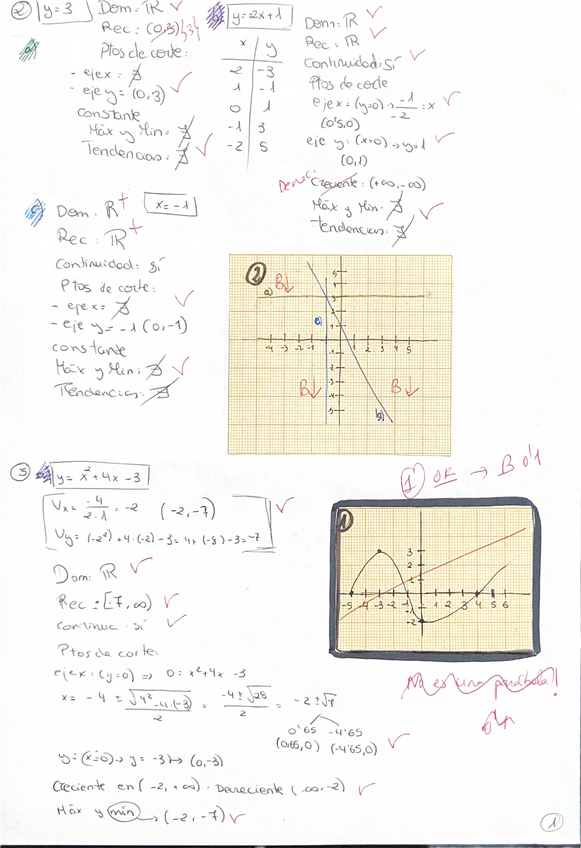 2 y=3
Dom: ℝ
Rec: (0,3) {3}
Ptos de corte:
- eje x: ∄
- eje y= (0,3)
constante
Máx y Mín: ∄
Tendencias: ∄
b) y=2x+1
x y
2 -3
1 -1
0 1
-1 3
-2 5
Dom: ℝ
Rec: ℝ
Continuidad: Sí
Ptos de corte
eje x= (y=0) → -1/-2 = x
(0'5,0)
eje y: (x=0) → y=1
(0,1)
Decreci
Creciente: (+∞,-∞)
Máx y Mín: ∄
Tendencias: ∄
c) Dom: ℝ+ x=-1
Rec: ℝ+
Continuidad: Sí
Ptos de corte:
- eje x= ∄
- eje y= -1 (0,-1)
constante
Máx y Mín: ∄
Tendencias: ∄
2
a) B↓
c)
-4 -3 -2 -1 1 2 3 4 5
5
4
3
2
1
-1
-2
-3
-4
-5
B↓ B↓
b)
3 y= x²+4x-3
Vx = -4/2·1 = -2 (-2,-7)
Vy= (-2²)+4·(-2)-3=4+(-8)-3=-7
Dom: ℝ
Rec = [-7,∞)
continua: sí
Ptos de corte:
eje x: (y=0) ⇒ 0= x²+4x -3
x= -4 ± √4²-4·(-3) / 2 = -4±√28 / 2 = -2±√7
0'65 -4'65
(0,65,0) (-4'65,0)
y= (x=0) → y= -3 → (0,-3)
Creciente en (-2,+∞) · Decreciente (-∞,-2)
Máx y mín → (-2,-7)
1 OK → B 0'1
1
3
2
1
-5 -4 -3 -2 -1 1 2 3 4 5 6
-2
No es una parábola!
1